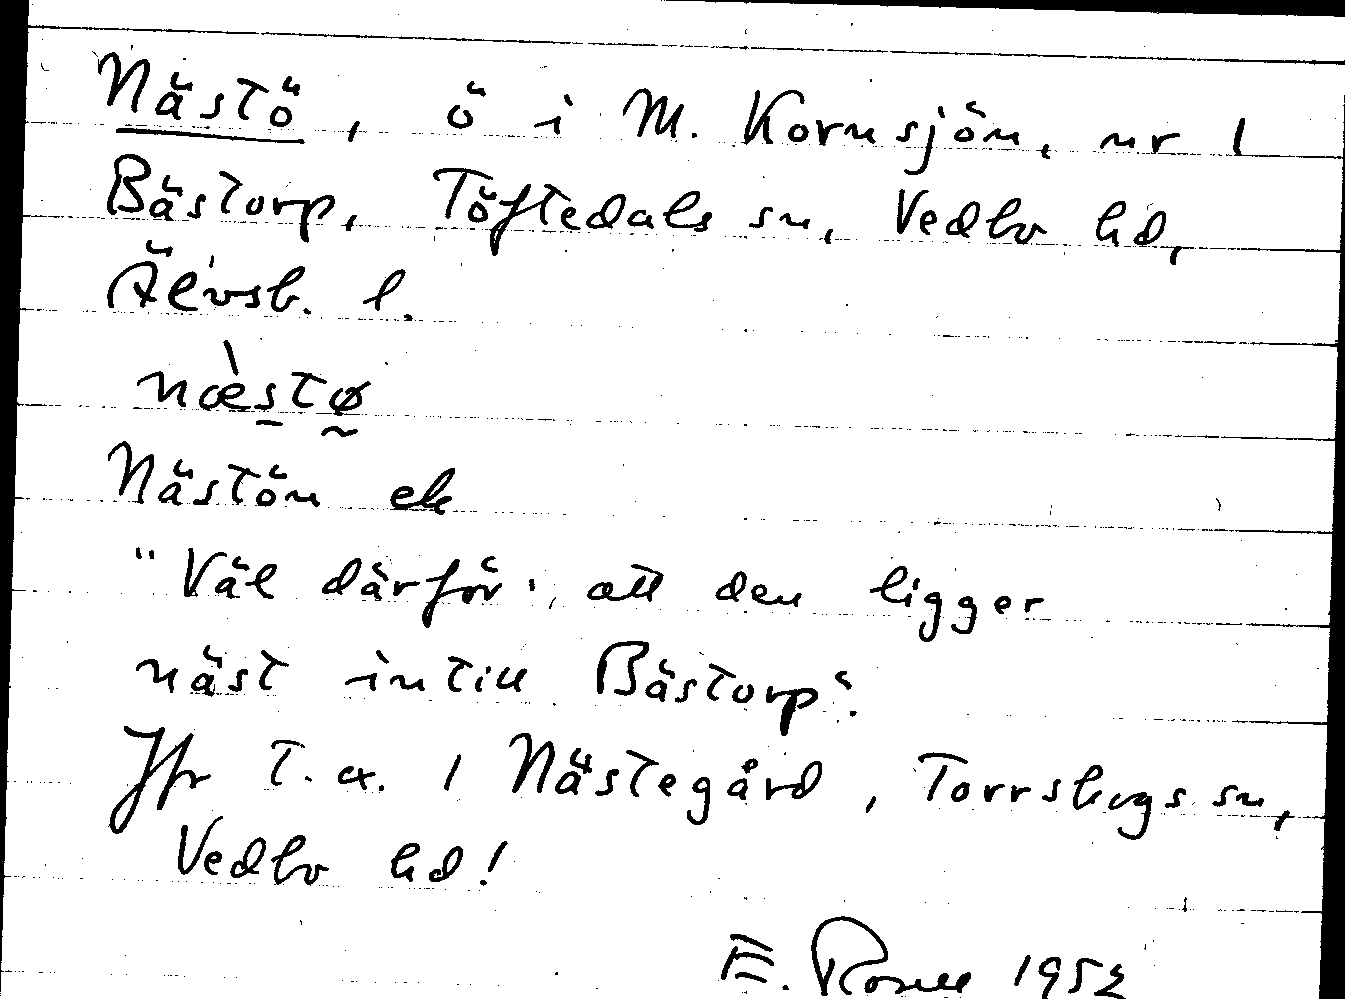 Nästö, ö i M. Kornsjön, nr 1
Bästorp, Töftedals sn, Vedbo hd,
Älvsb. l.
næ̀stø
Nästön ek
"Väl därför, att den ligger
näst intill Bästorp".
Jfr t. ex. 1 Nästegård, Torrskogs sn,
Vedbo hd!
E. Rosell 1952